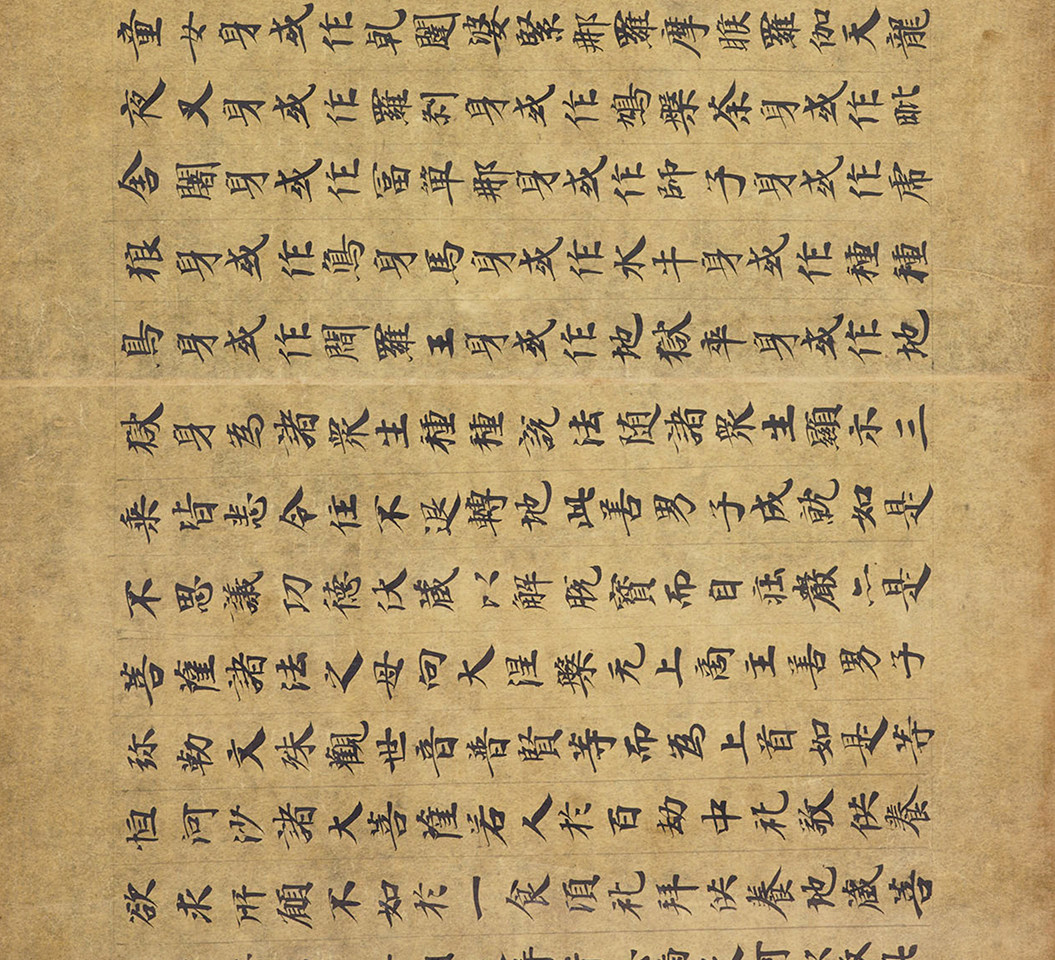 童女身或作乹闥婆緊那羅摩睺羅伽天龍
夜叉身或作羅剎身或作鳩槃荼身或作毗
舍闍身或作富單那身或作師子身或作虎
狼身或作鳥身馬身或作水牛身或作種種
鳥身或作閻羅王身或作地獄卒身或作地
獄身為諸眾生種種說法随諸眾生顯示三
乗皆悉令住不退轉地此善男子成就如是
不思議功德伏蔵以解脫寶而自莊嚴亦是
菩薩諸法之母向大涅槃无上商主善男子
弥勒文殊觀世音普賢等而為上首如是等
恒河沙諸大菩薩若人於百劫中礼敬供養
欲求所願不如於一食頃礼拜供養地蔵菩